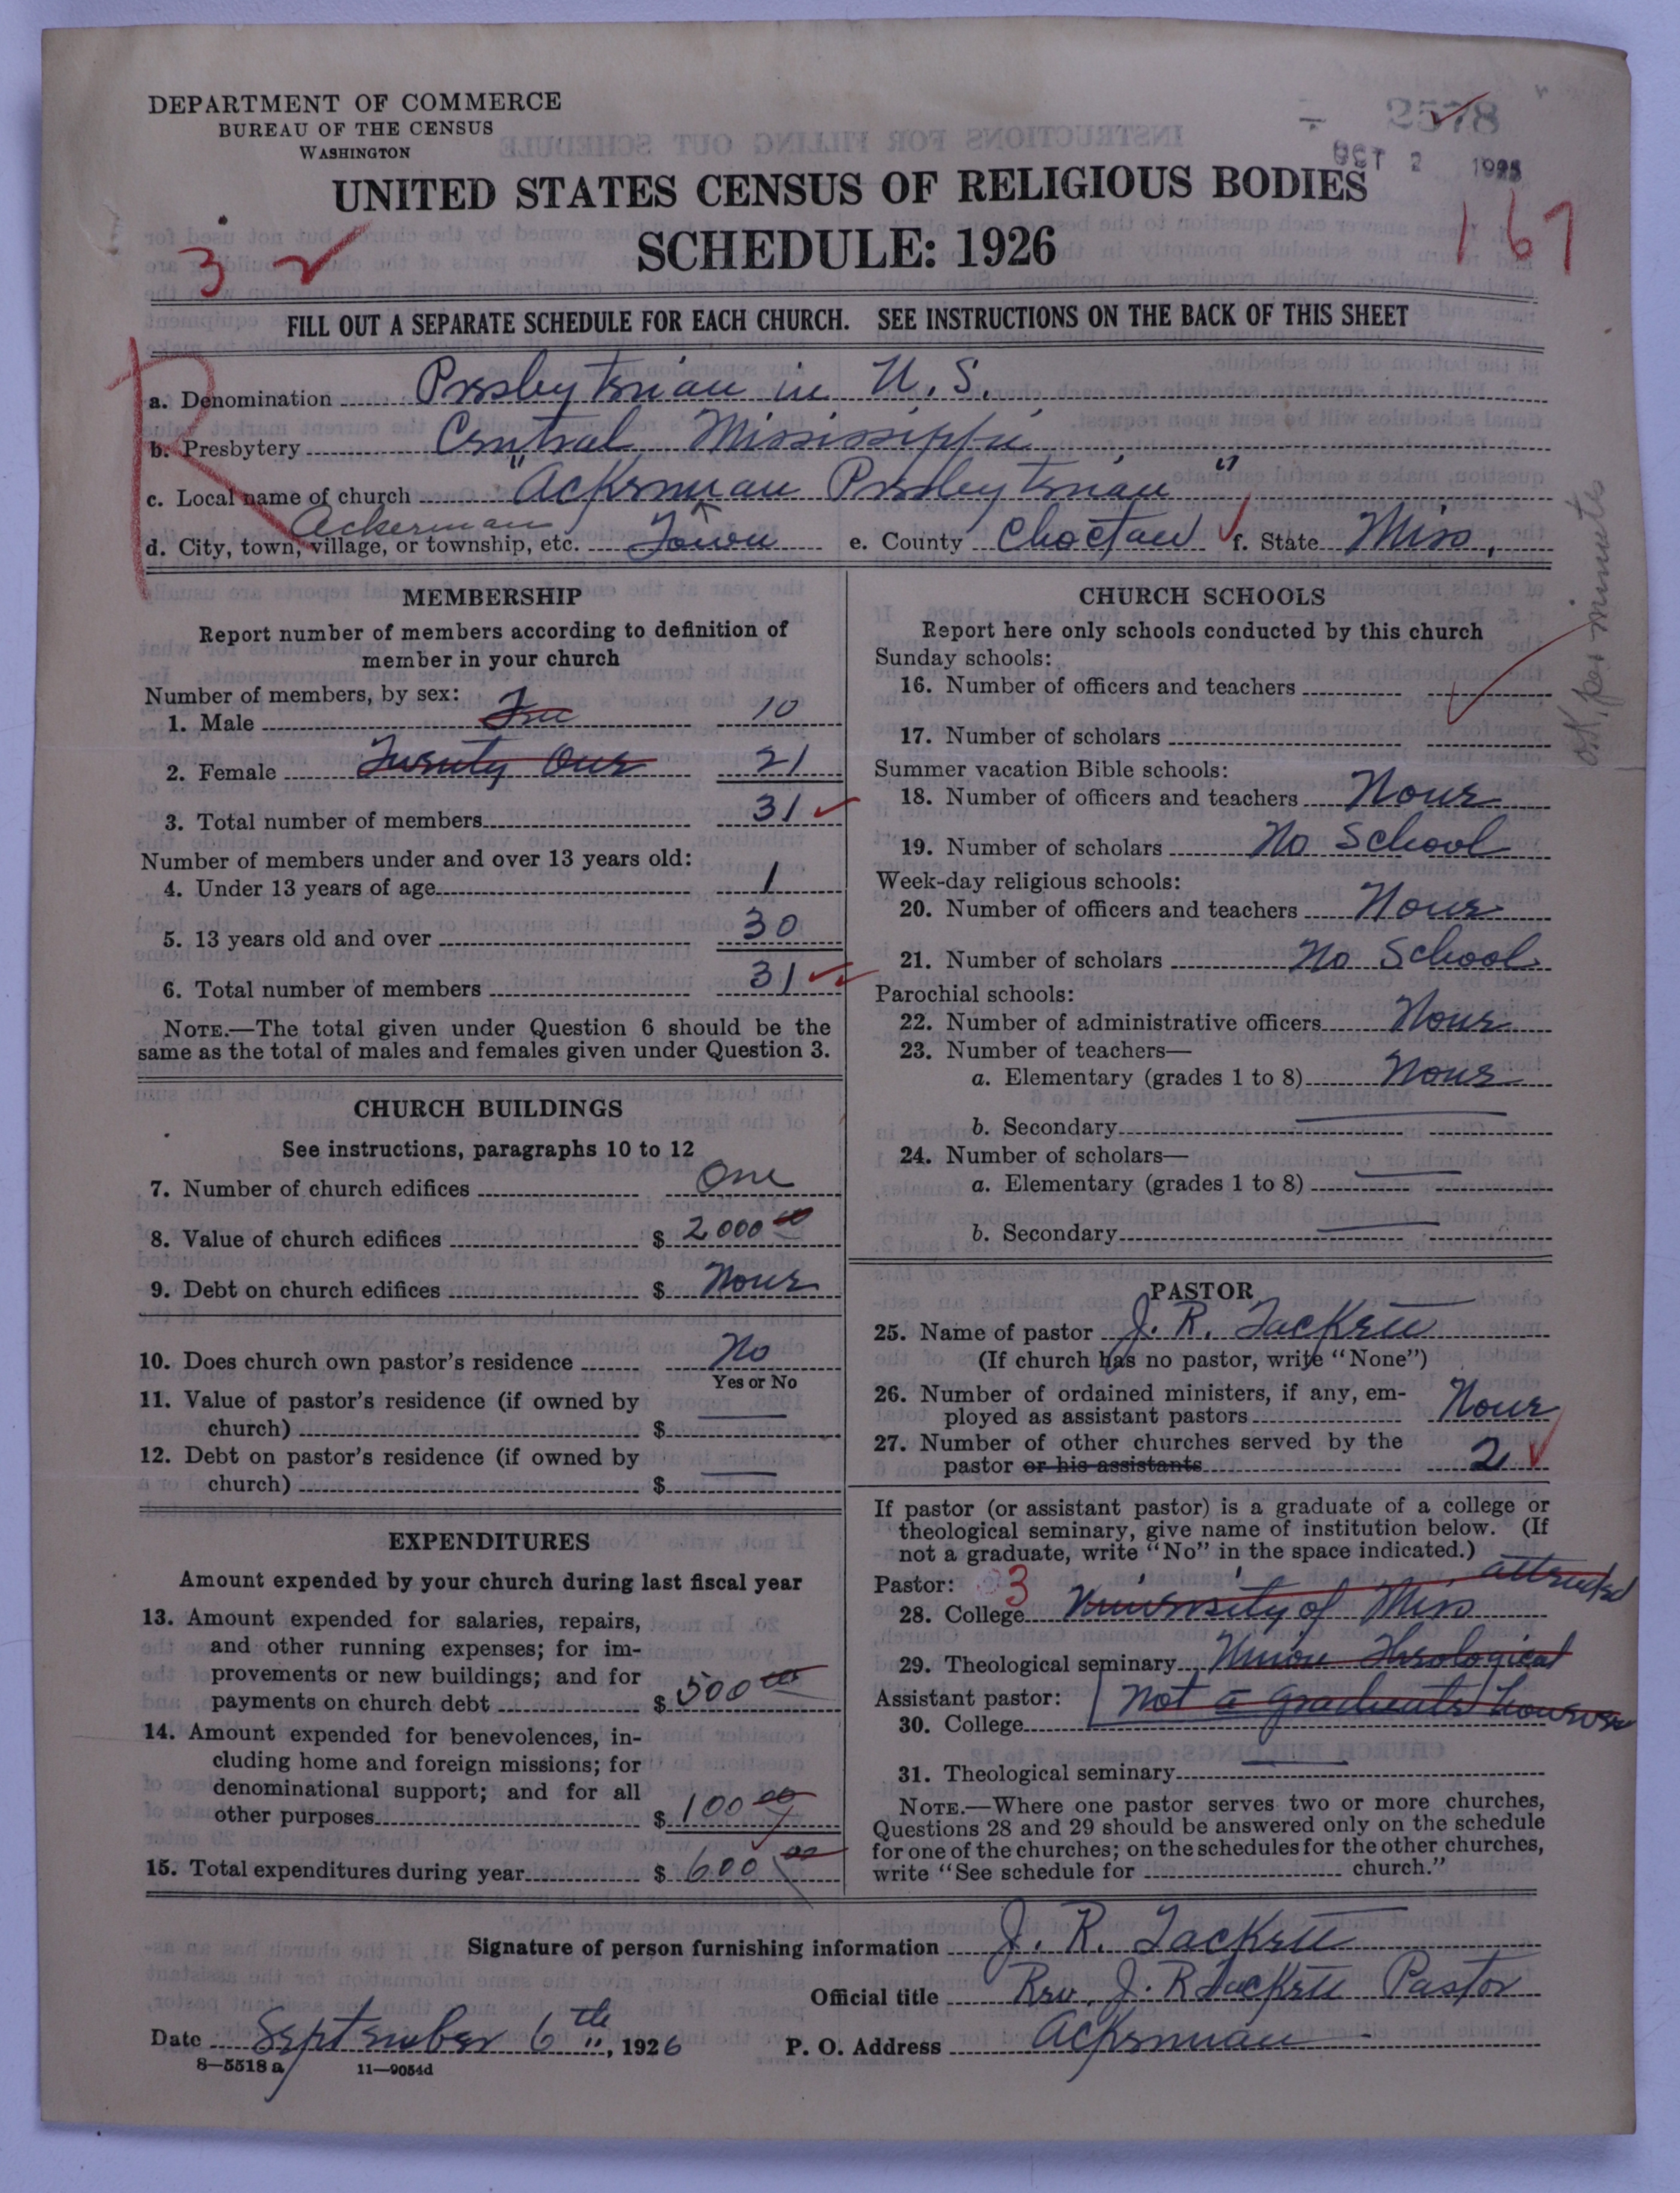 DEPARTMENT OF COMMERCE
BUREAU OF THE CENSUS
WASHINGTON
2578
OCT 2 1928
UNITED STATES CENSUS OF RELIGIOUS BODIES
SCHEDULE: 1926
3
167
FILL OUT A SEPARATE SCHEDULE FOR EACH CHURCH. SEE INSTRUCTIONS ON THE BACK OF THIS SHEET
R
a. Denomination Presbyterian in U.S.
b. Presbytery Central Mississippi
c. Local name of church "Ackerman Presbyterian"
Ackerman
d. City, town, village, or township, etc. Town e. County Choctaw f. State Miss.
O.K. per minutes
MEMBERSHIP
Report number of members according to definition of
member in your church
Number of members, by sex:
1. Male Ten 10
2. Female Twenty One 21
3. Total number of members 31
Number of members under and over 13 years old:
4. Under 13 years of age 1
5. 13 years old and over 30
6. Total number of members 31
NOTE.—The total given under Question 6 should be the
same as the total of males and females given under Question 3.
CHURCH BUILDINGS
See instructions, paragraphs 10 to 12
7. Number of church edifices One
8. Value of church edifices $ 2000 00
9. Debt on church edifices $ None
10. Does church own pastor's residence No
Yes or No
11. Value of pastor's residence (if owned by
church) $ —
12. Debt on pastor's residence (if owned by
church) $ —
EXPENDITURES
Amount expended by your church during last fiscal year
13. Amount expended for salaries, repairs,
and other running expenses; for im-
provements or new buildings; and for
payments on church debt $ 500 00
14. Amount expended for benevolences, in-
cluding home and foreign missions; for
denominational support; and for all
other purposes $ 100 00
15. Total expenditures during year $ 600 00
CHURCH SCHOOLS
Report here only schools conducted by this church
Sunday schools:
16. Number of officers and teachers
17. Number of scholars
Summer vacation Bible schools:
18. Number of officers and teachers None
19. Number of scholars No School
Week-day religious schools:
20. Number of officers and teachers None
21. Number of scholars No School
Parochial schools:
22. Number of administrative officers None
23. Number of teachers—
a. Elementary (grades 1 to 8) None
b. Secondary —
24. Number of scholars—
a. Elementary (grades 1 to 8) —
b. Secondary —
PASTOR
25. Name of pastor J. R. Tackett
(If church has no pastor, write "None")
26. Number of ordained ministers, if any, em-
ployed as assistant pastors None
27. Number of other churches served by the
pastor or his assistants 2
If pastor (or assistant pastor) is a graduate of a college or
theological seminary, give name of institution below. (If
not a graduate, write "No" in the space indicated.)
Pastor: 3 attended
28. College University of Miss
29. Theological seminary Union Theological
Assistant pastor: Not a graduate however
30. College
31. Theological seminary —
NOTE.—Where one pastor serves two or more churches,
Questions 28 and 29 should be answered only on the schedule
for one of the churches; on the schedules for the other churches,
write "See schedule for church."
Signature of person furnishing information J. R. Tackett
Official title Rev. J. R Tackett Pastor
Date September 6th, 1926 P. O. Address Ackerman
8—5518 a 11—9054d